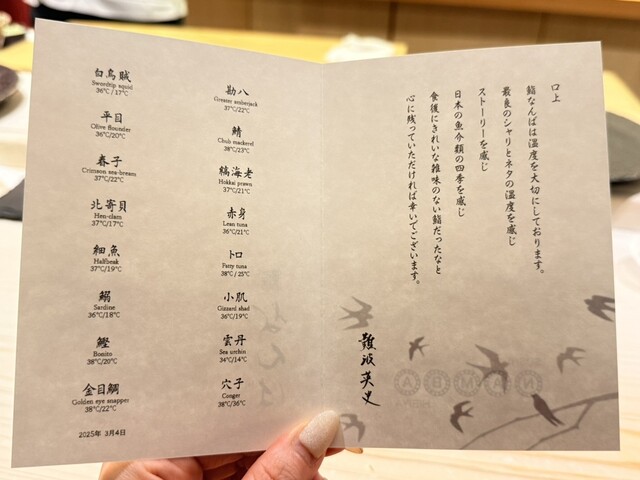 白烏賊
Swordtip squid
36℃ / 17℃
平目
Olive flounder
36℃/20℃
春子
Crimson sea-bream
37℃/22℃
北寄貝
Hen-clam
37℃/17℃
細魚
Halfbeak
37℃/19℃
鰯
Sardine
36℃/18℃
鰹
Bonito
38℃/20℃
金目鯛
Golden eye snapper
38℃/22℃
2025年 3月4日
勘八
Greater amberjack
37℃/22℃
鯖
Chub mackerel
38℃/23℃
縞海老
Hokkai prawn
37℃/21℃
赤身
Lean tuna
36℃/21℃
トロ
Fatty tuna
38℃ / 25℃
小肌
Gizzard shad
36℃/19℃
雲丹
Sea urchin
34℃/14℃
穴子
Conger
38℃/36℃
口上
鮨なんばは温度を大切にしております。
最良のシャリとネタの温度を感じ
ストーリーを感じ
日本の魚介類の四季を感じ
食後にきれいな雑味のない鮨だったなと
心に残っていただければ幸いでございます。
難波英史
NAMBA